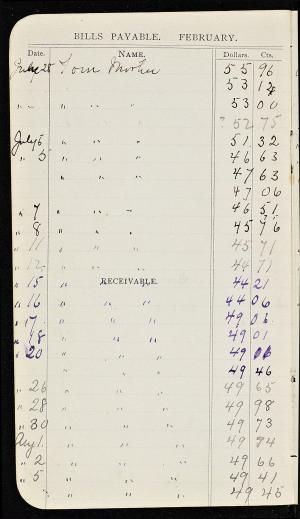 BILLS PAYABLE. FEBRUARY.
Date. NAME. Dollars. Cts.
July 25 Tom 55 96
" " " " 53 12
" " " 53 00
? 52 75
July 5 " " " 51 32
" 5 " " " 46 63
" " " 47 63
47 06
" 7 " " " 46 51
" 8 " " " 45 76
" 11 " " " 45 71
" 12 " " " 44 71
" 15 RECEIVABLE. 44 21
" 16 " " " 44 06
" 17 " " " 49 06
" 18 " " " 49 01
" 20 " " 49 06
" " 49 46
" 26 " " " 49 65
" 28 " " " 49 98
" 30 " " " 49 73
Aug 1. " " " 49 74
" 2 " " " 49 66
" 5 " " " 49 41
" " " 49 45